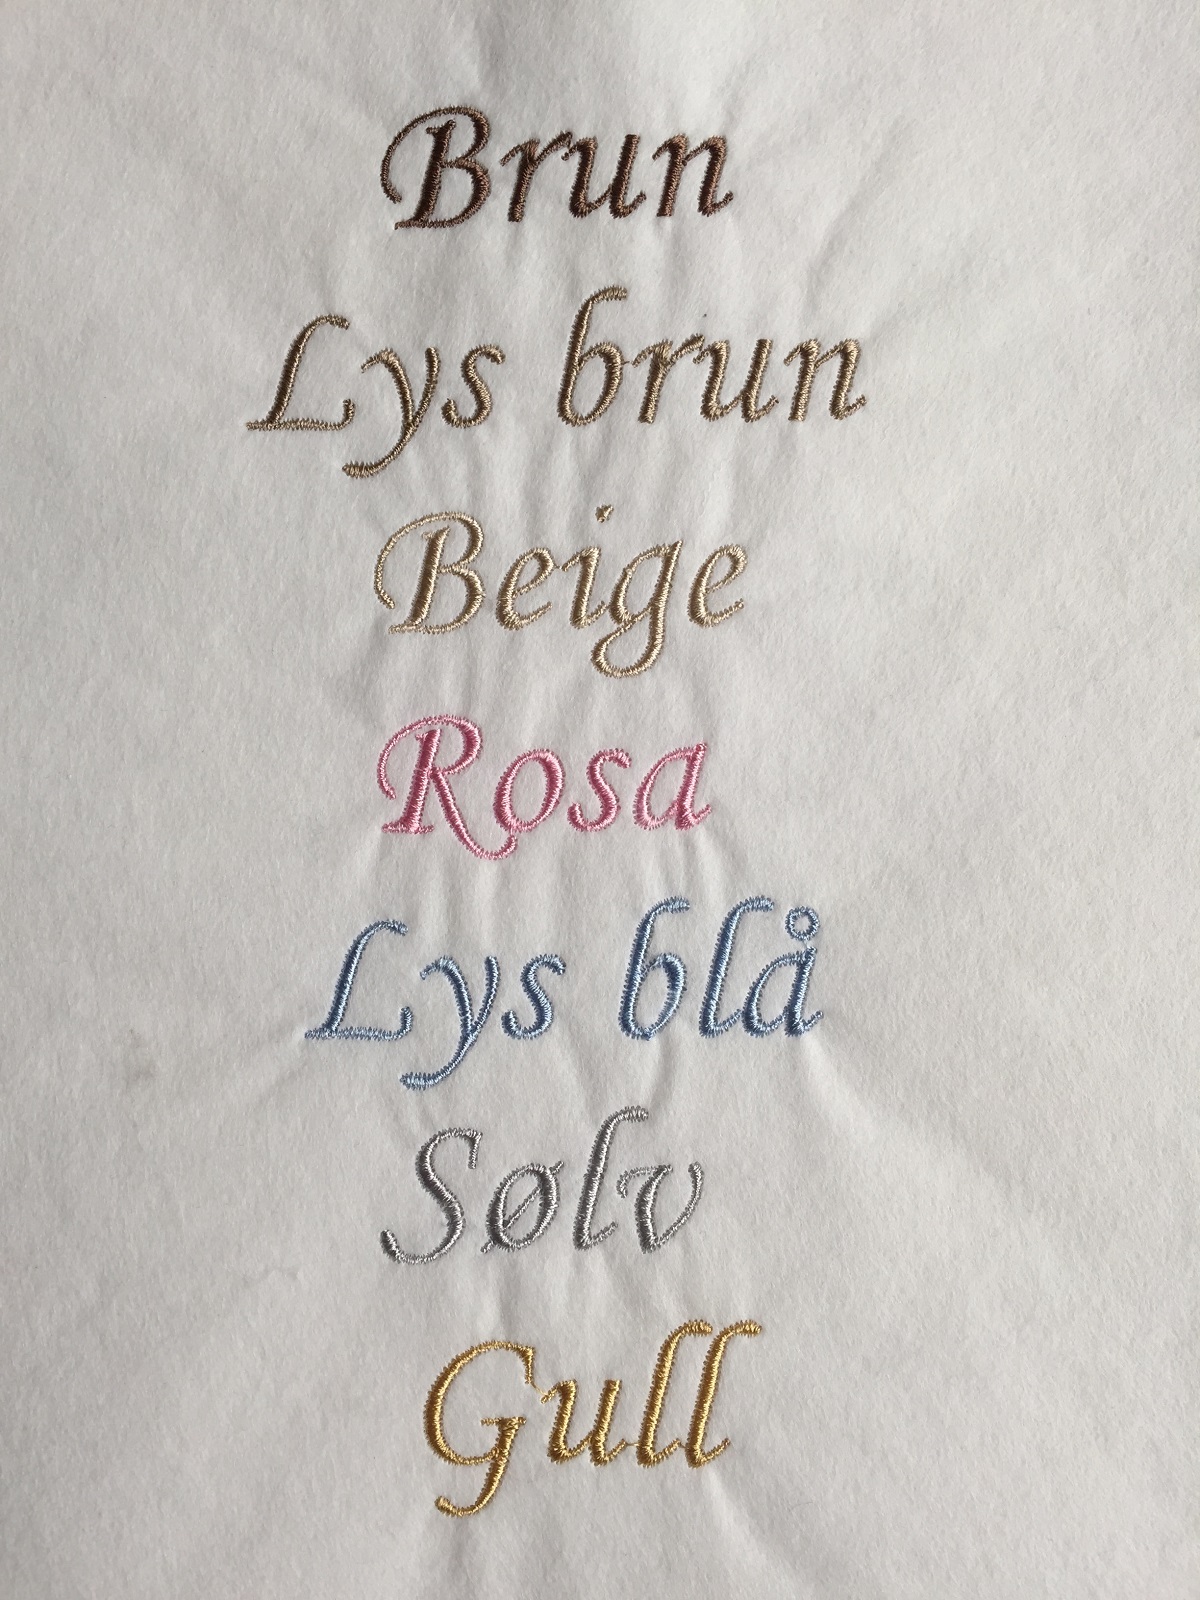 Brun
Lys brun
Beige
Rosa
Lys blå
Sølv
Gull